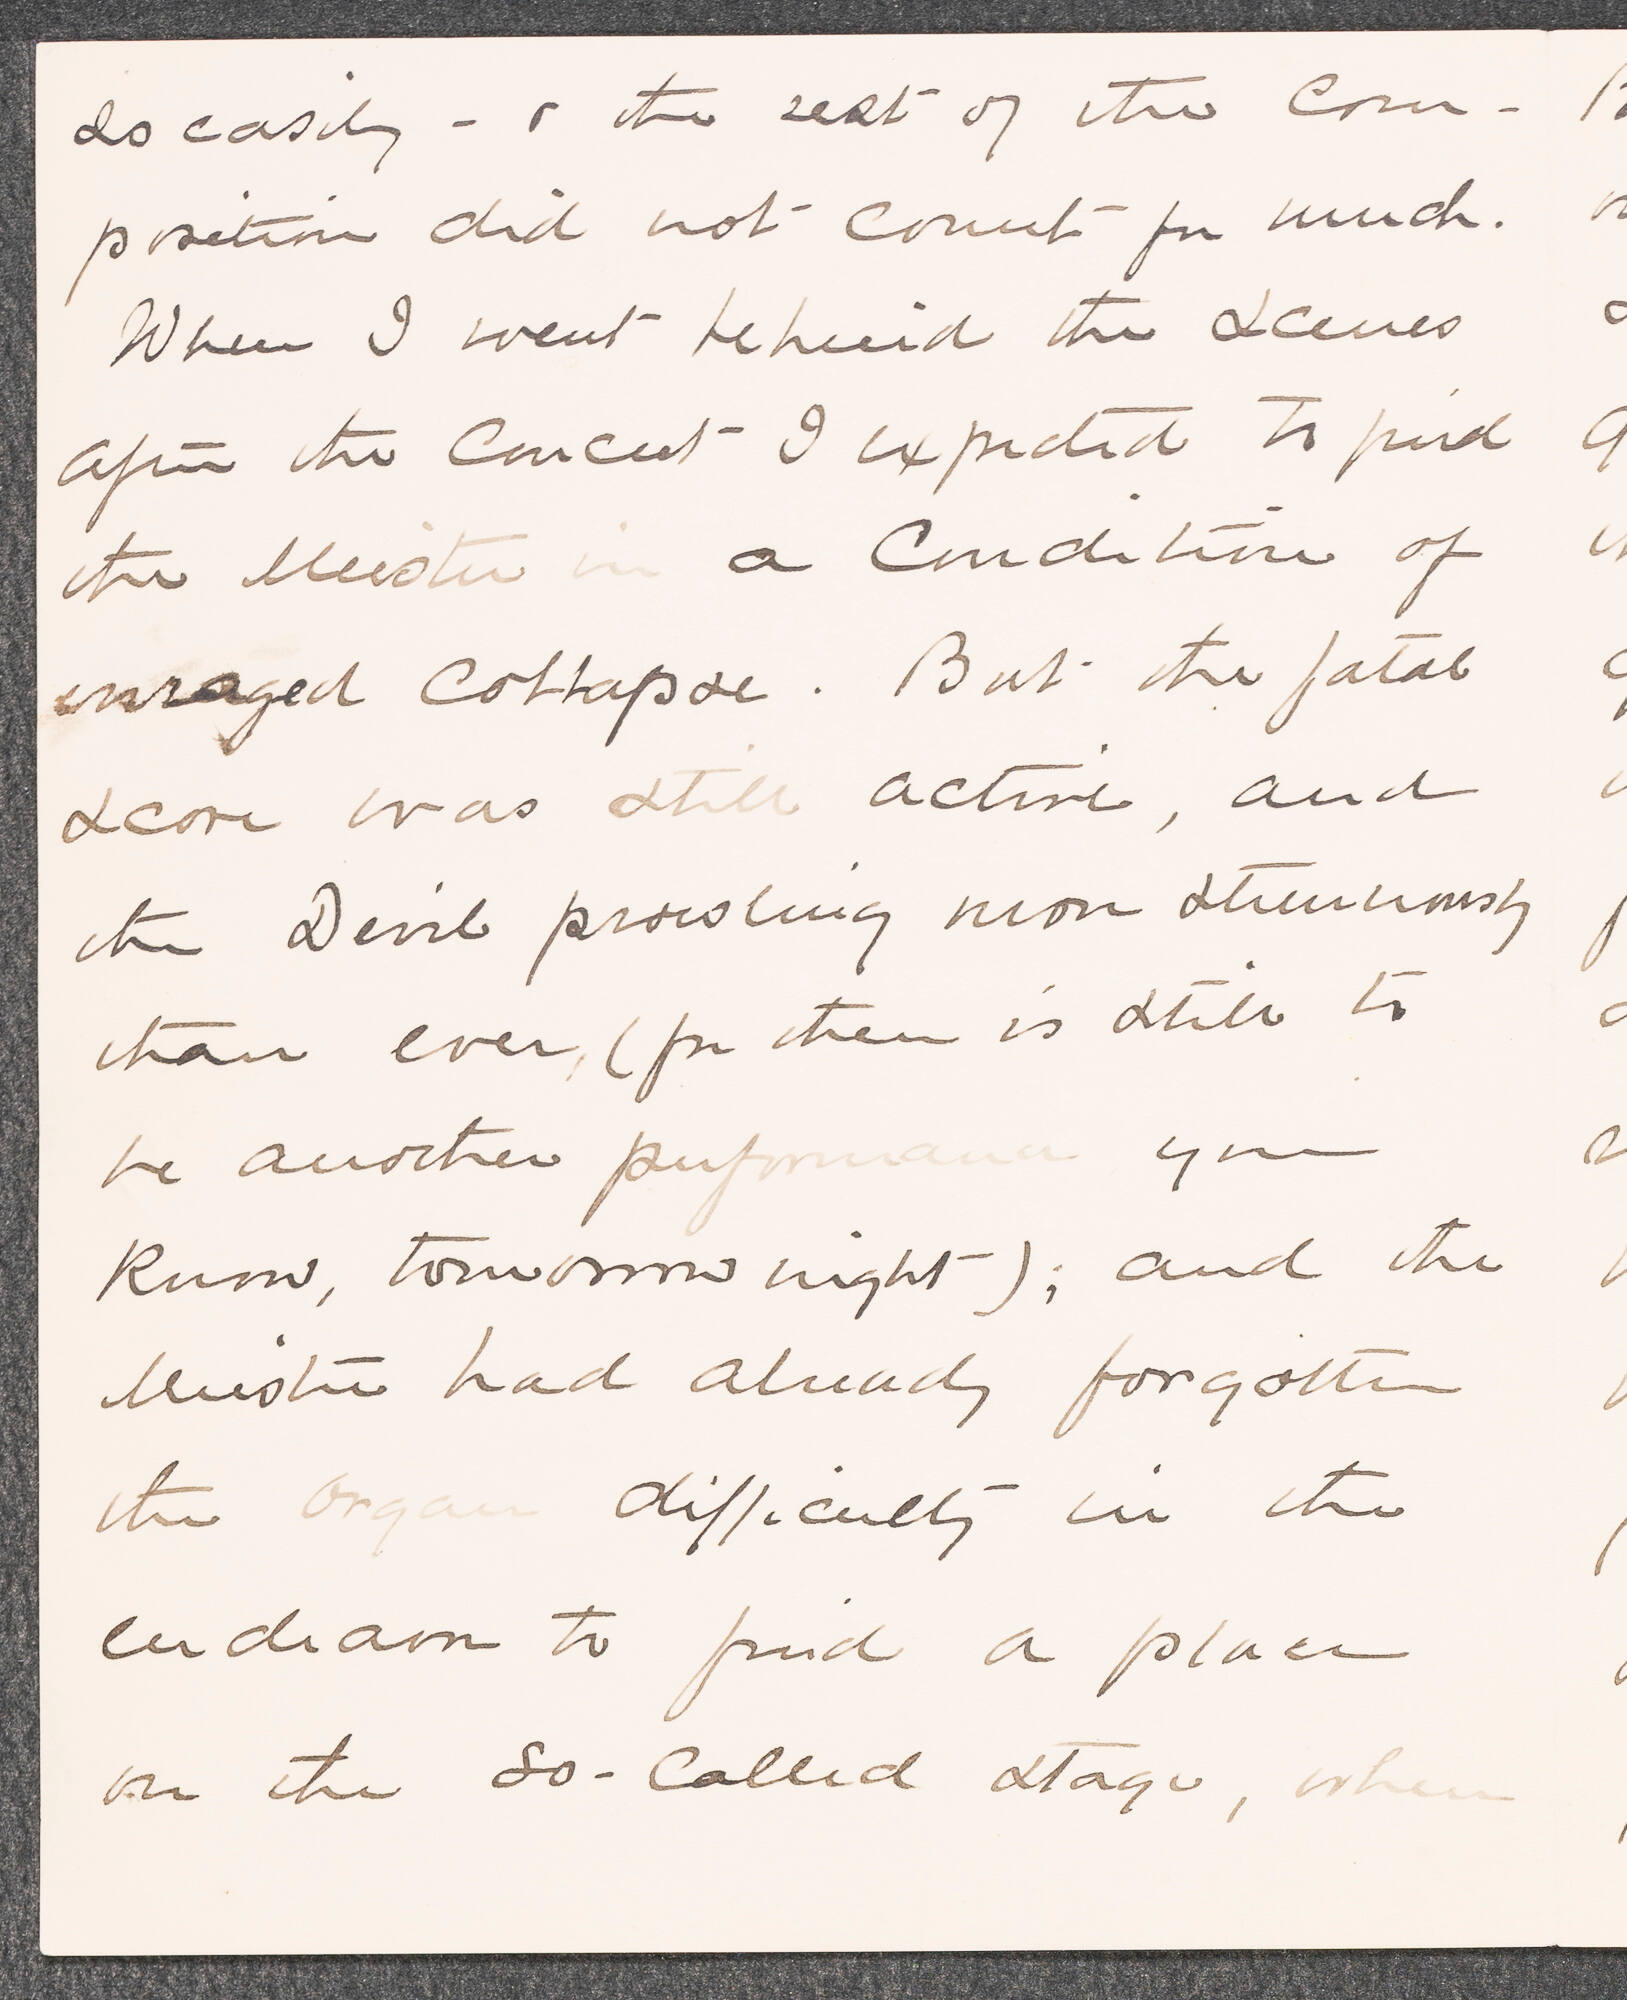 so easily - & the rest of the com-
position did not count for much.
When I went behind the scenes
after the concert I expected to find
the Meister in a condition of
enraged collapse. But the fatal
score was still active, and
the Devil prowling more strenuously
than ever, (for there is still to
be another performance you
know, tomorrow night); and the
Meister had already forgotten
the organ difficulty in the
endeavor to find a place
on the so-called stage, where